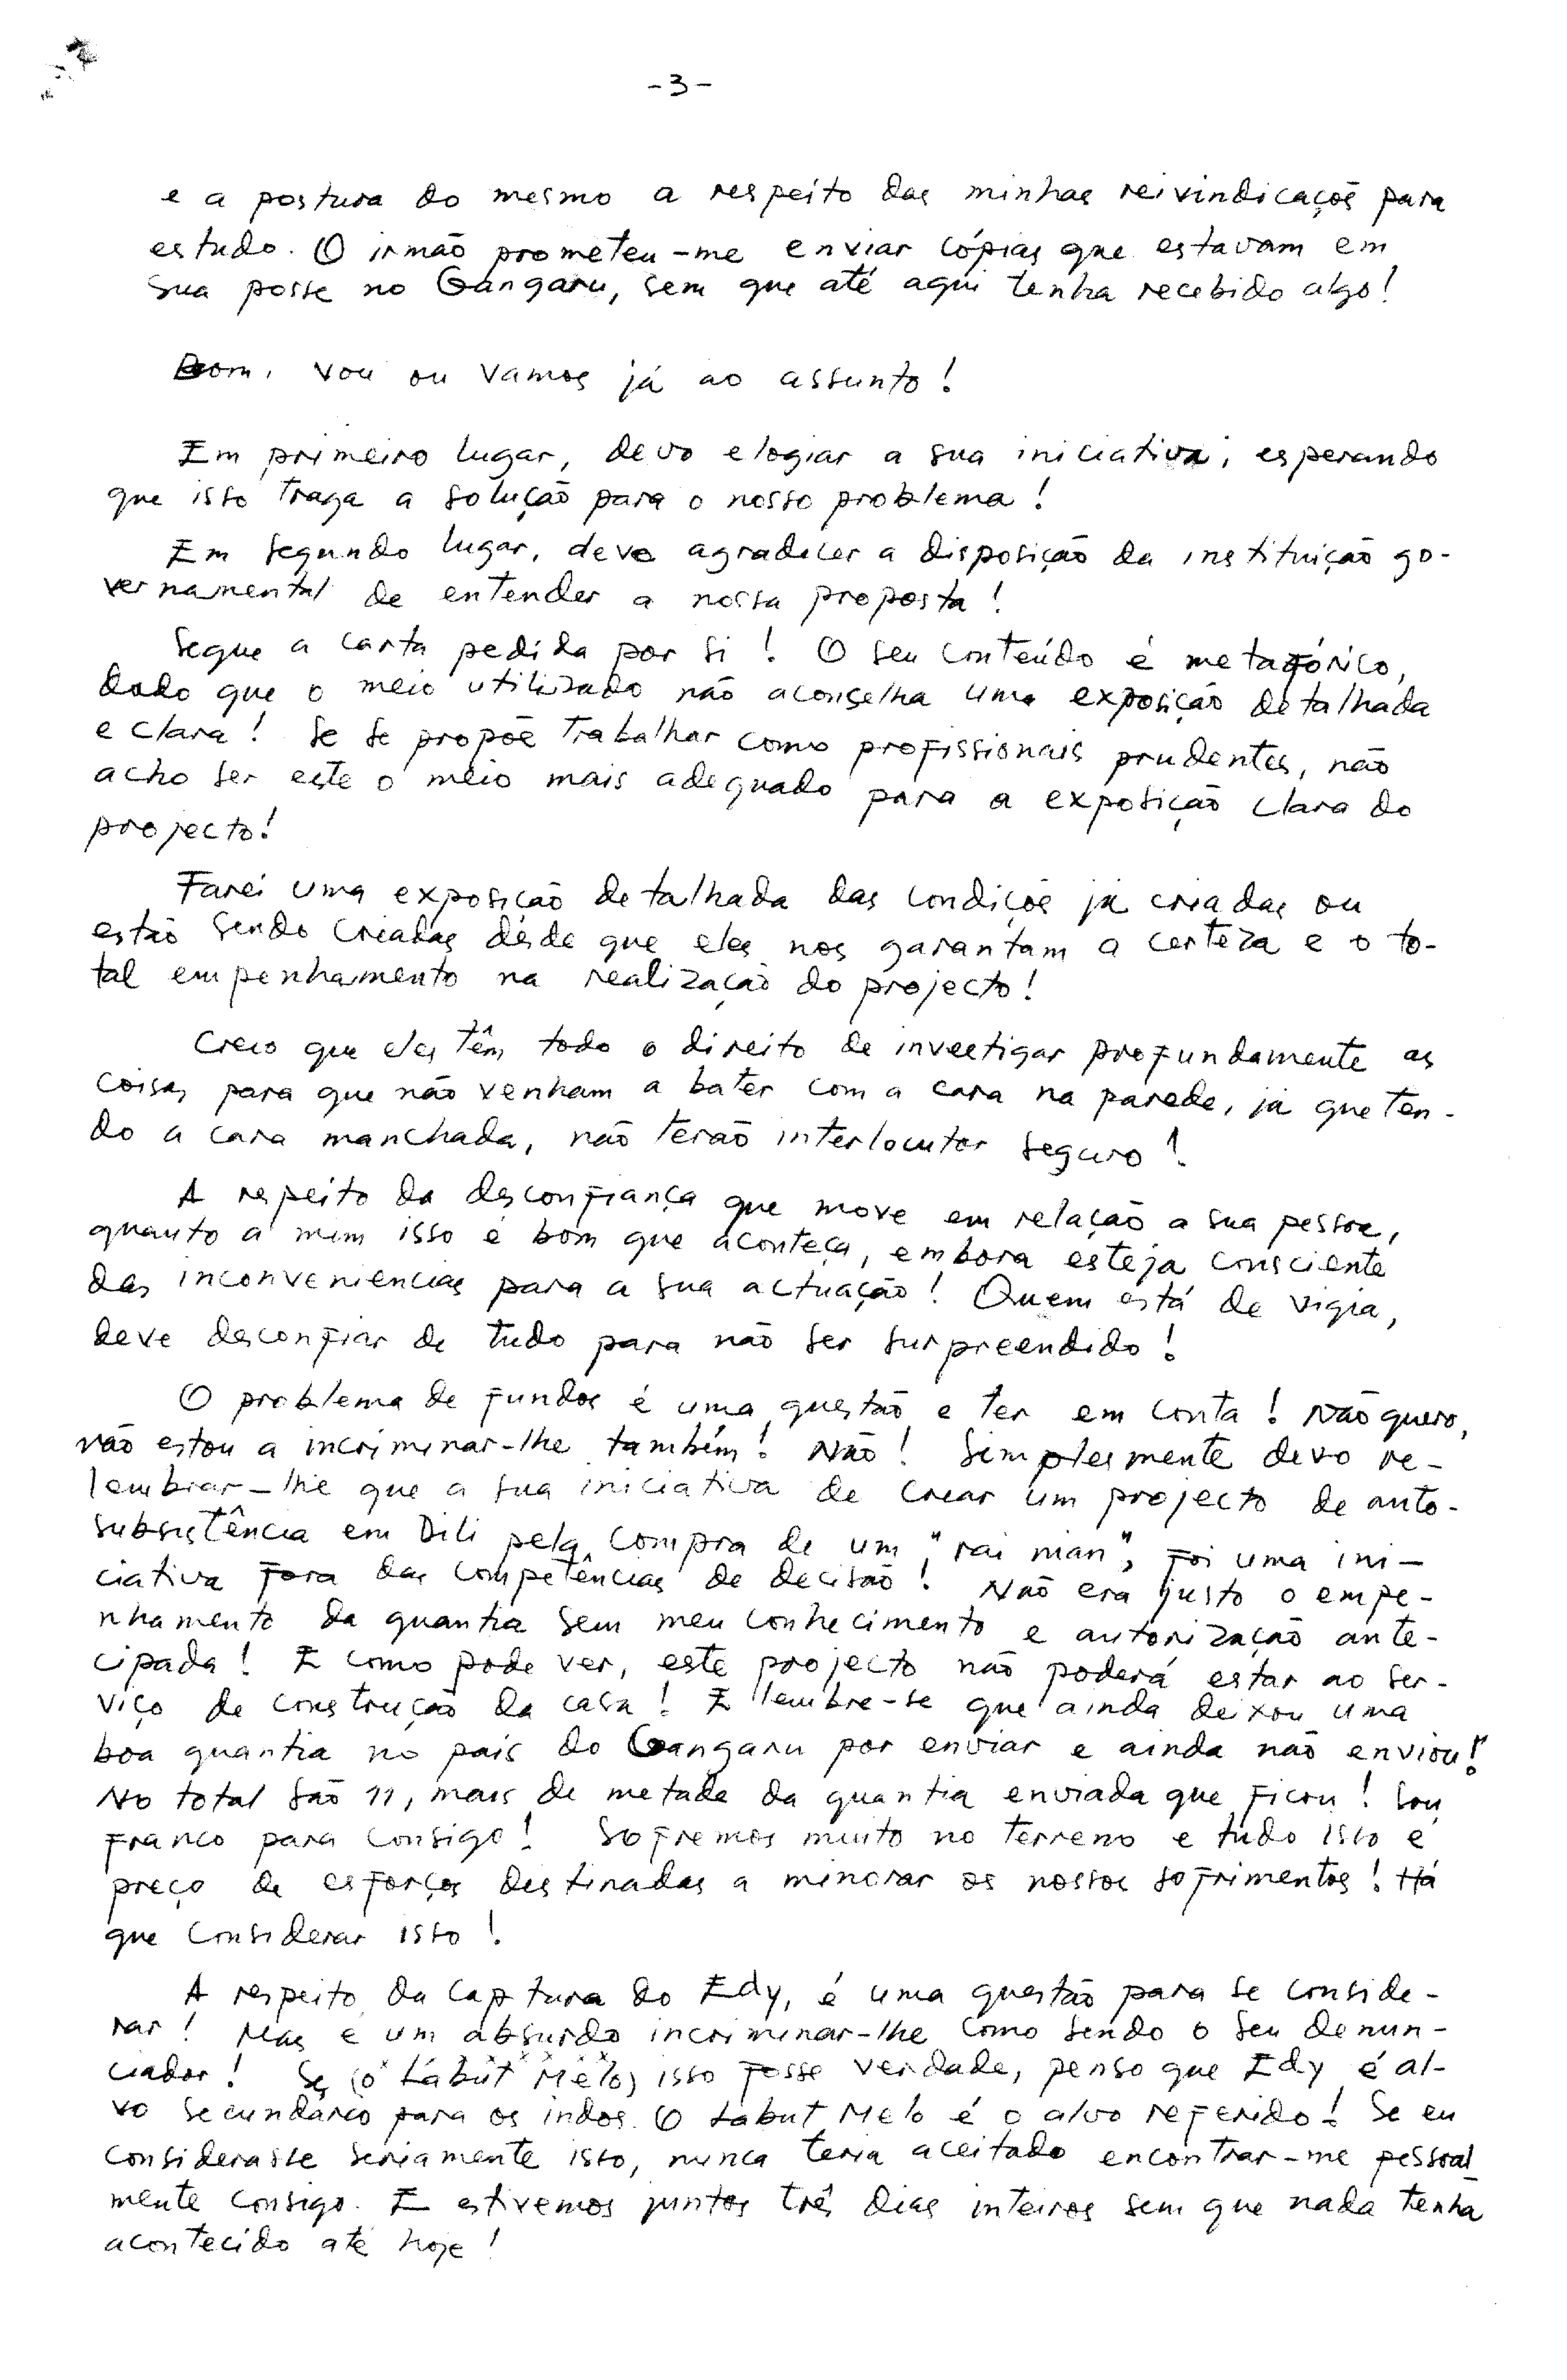 -3-
e a postura do mesmo a respeito das minhas reivindicações para
estudo. O irmão prometeu-me enviar cópias que estavam em
sua posse no Gangaru, sem que até aqui tenha recebido algo!
Bom, vou ou vamos já ao assunto!
Em primeiro lugar, devo elogiar a sua iniciativa, esperando
que isso traga a solução para o nosso problema!
Em segundo lugar, devo agradecer a disposição da instituição go-
vernamental de entender a nossa proposta!
Segue a carta pedida por si! O seu conteúdo é metafórico,
dado que o meio utilizado não aconselha uma exposição detalhada
e clara! Se se propõe trabalhar como profissionais prudentes, não
acho ser este o meio mais adequado para a exposição clara do
projecto!
Farei uma exposição detalhada das condições já criadas ou
estão sendo criadas desde que eles nos garantam a certeza e o to-
tal empenhamento na realização do projecto!
Creio que eles têm todo o direito de investigar profundamente as
coisas para que não venham a bater com a cara na parede, já que ten-
do a cara manchada, não terão interlocutor seguro!
A respeito da desconfiança que move em relação a sua pessoa,
quanto a mim isso é bom que aconteça, embora esteja consciente
das inconveniencias para a sua actuação! Quem está de vigia,
deve desconfiar de tudo para não ser surpreendido!
O problema de fundos é uma questão e ter em conta! Não quero,
não estou a incriminar-lhe também! Não! Simplesmente devo re-
lembrar-lhe que a sua iniciativa de crear um projecto de auto-
subsistência em Dili pela compra de um "rai nian", foi uma ini-
ciativa fora das competências de decisão! Não era justo o empe-
nhamento da quantia sem meu conhecimento e autorização ante-
cipada! E como pode ver, este projecto não poderá estar ao ser-
viço de construção da casa! E lembre-se que ainda deixou uma
boa quantia no país do Gangaru por enviar e ainda não enviou!
No total são 11, mais de metade da quantia enviada que ficou! Sou
franco para consigo! Sofremos muito no terreno e tudo isso é
preço de esforços destinadas a minorar os nossos sofrimentos! Há
que considerar isso!
A respeito da captura do Edy, é uma questão para se conside-
rar! Mas é um absurdo incriminar-lhe como sendo o seu denun-
ciador! Se (o Labut Melo) isso fosse verdade, penso que Edy é al-
vo secundário para os indos. O Labut Melo é o alvo referido! Se eu
considerasse seriamente isso, nunca teria aceitado encontrar-me pessoal
mente consigo. E estivemos juntos três dias inteiros sem que nada tenha
acontecido até hoje!